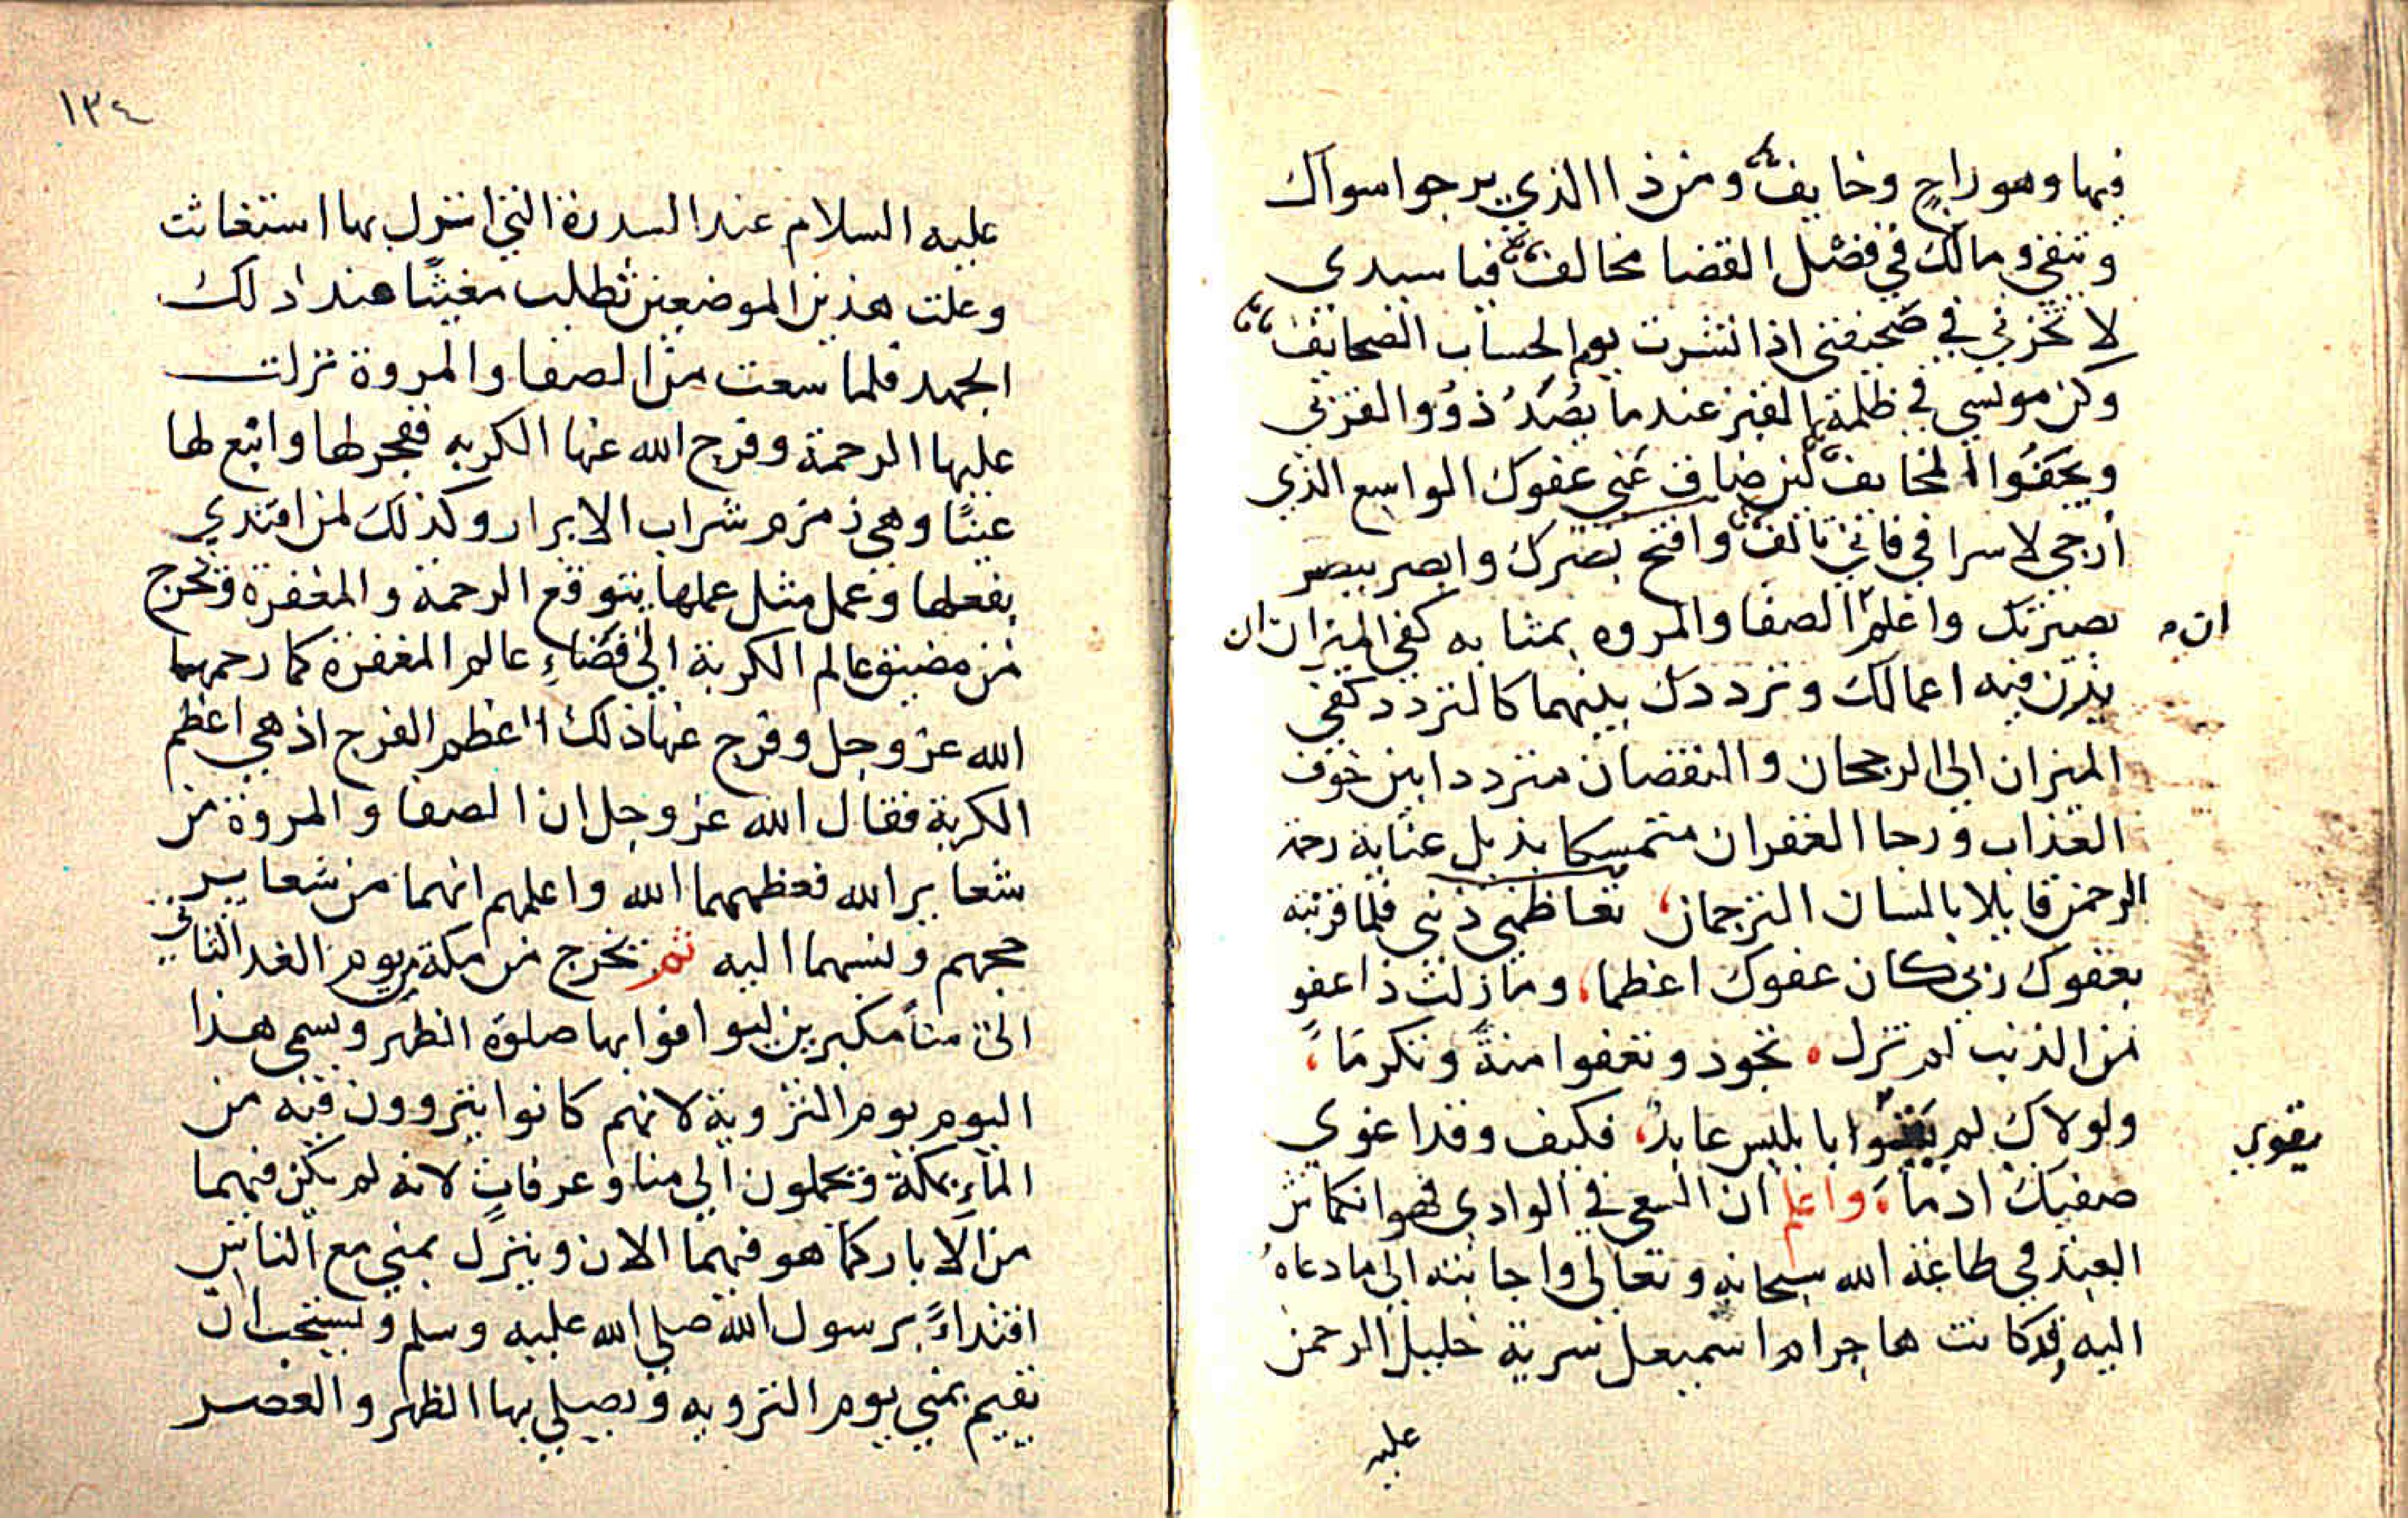 فيها وهو راجٍ وخايف ومن ذا الذي يرجوا سواك
وتتقي ومالك في فصل القضا مخالف فيا سيدي
لا تخزني في صحيفتي اذا نشرت يوم الحساب الصحايف
وكن مونسي في ظلمة القبر عندما يصد ذووا القربي
ويجفوا المخالف لين ضاق عني عفوك الواسع الذي
أرجي لاسرافي فاني تالف وافتح بصرك وابصر ببصر
بصيرتك واعلم الصفا والمروه بمثابه كفي الميزان ان
ان
يزن فيه اعمالك وترددك بينهما كالتردد كفي
الميزان الي الرجحان والنقصان مترددا بين خوف
العذاب ورجا الغفران متمسكا بذيل عناية رحمة
الرحمن قايلا بالسان الترجمان، تعاظمني ذنبي فلما قرنته
بعفوك ربي كان عفوك اعظما، وما زلت ذا عفو
من الذنب لم تزل . تجود وتعفوا منةً وتكرمًا،
ولولاك لم يقوا بابليس عابد، فكيف وقد اغوي
يقوي
صفيك ادما، واعلم ان السعي في الوادي فهو انكماش
العبد في طاعة الله سبحانه وتعالى واجابته الي ما دعاهُ
اليه وقد كانت هاجر ام اسميعل سرية خليل الرحمن
عليه
١٣٤
عليه السلام عند السدرة التي انزل بها استغاثت
وعلت هذين الموضعين تطلب مغيثًا عند ذلك
الجهد فلما سعت من الصفا والمروة نزلت
عليها الرحمة وفرج الله عنها الكربه ففجر لها وانبع لها
عينًا وهي زمزم شراب الابرار وكذلك لمن اقتدي
بفعلها وعمل مثل عملها يتوقع الرحمة والمغفرة وتخرج
من مضيق عالم الكربة الي فضاءِ عالم المغفرة كما رحمها
الله عز وجل وفرج عنها ذلك اعظم الفرج اذ هي اعظم
الكربة فقال الله عز وجل ان الصفا والمروة من
شعاير الله فعظمهما الله واعلمهم انهما من شعاير
حجهم ونسبهما اليه ثم تخرج من مكة يوم الغد الثاني
الى منأ مكبرين ليوافوا بها صلوة الظهر ويسمى هذا
اليوم يوم التروية لانهم كانوا يتروون فيه من
الماءِ بمكة ويحملون الي منا وعرفات لانه لم يكن فيهما
من الآبار كما هو فيهما الان وينزل بمني مع الناس
اقتداءً برسول الله صلي الله عليه وسلم ويستحب ان
تقيم بمني يوم الترويه وتصلي بها الظهر والعصر